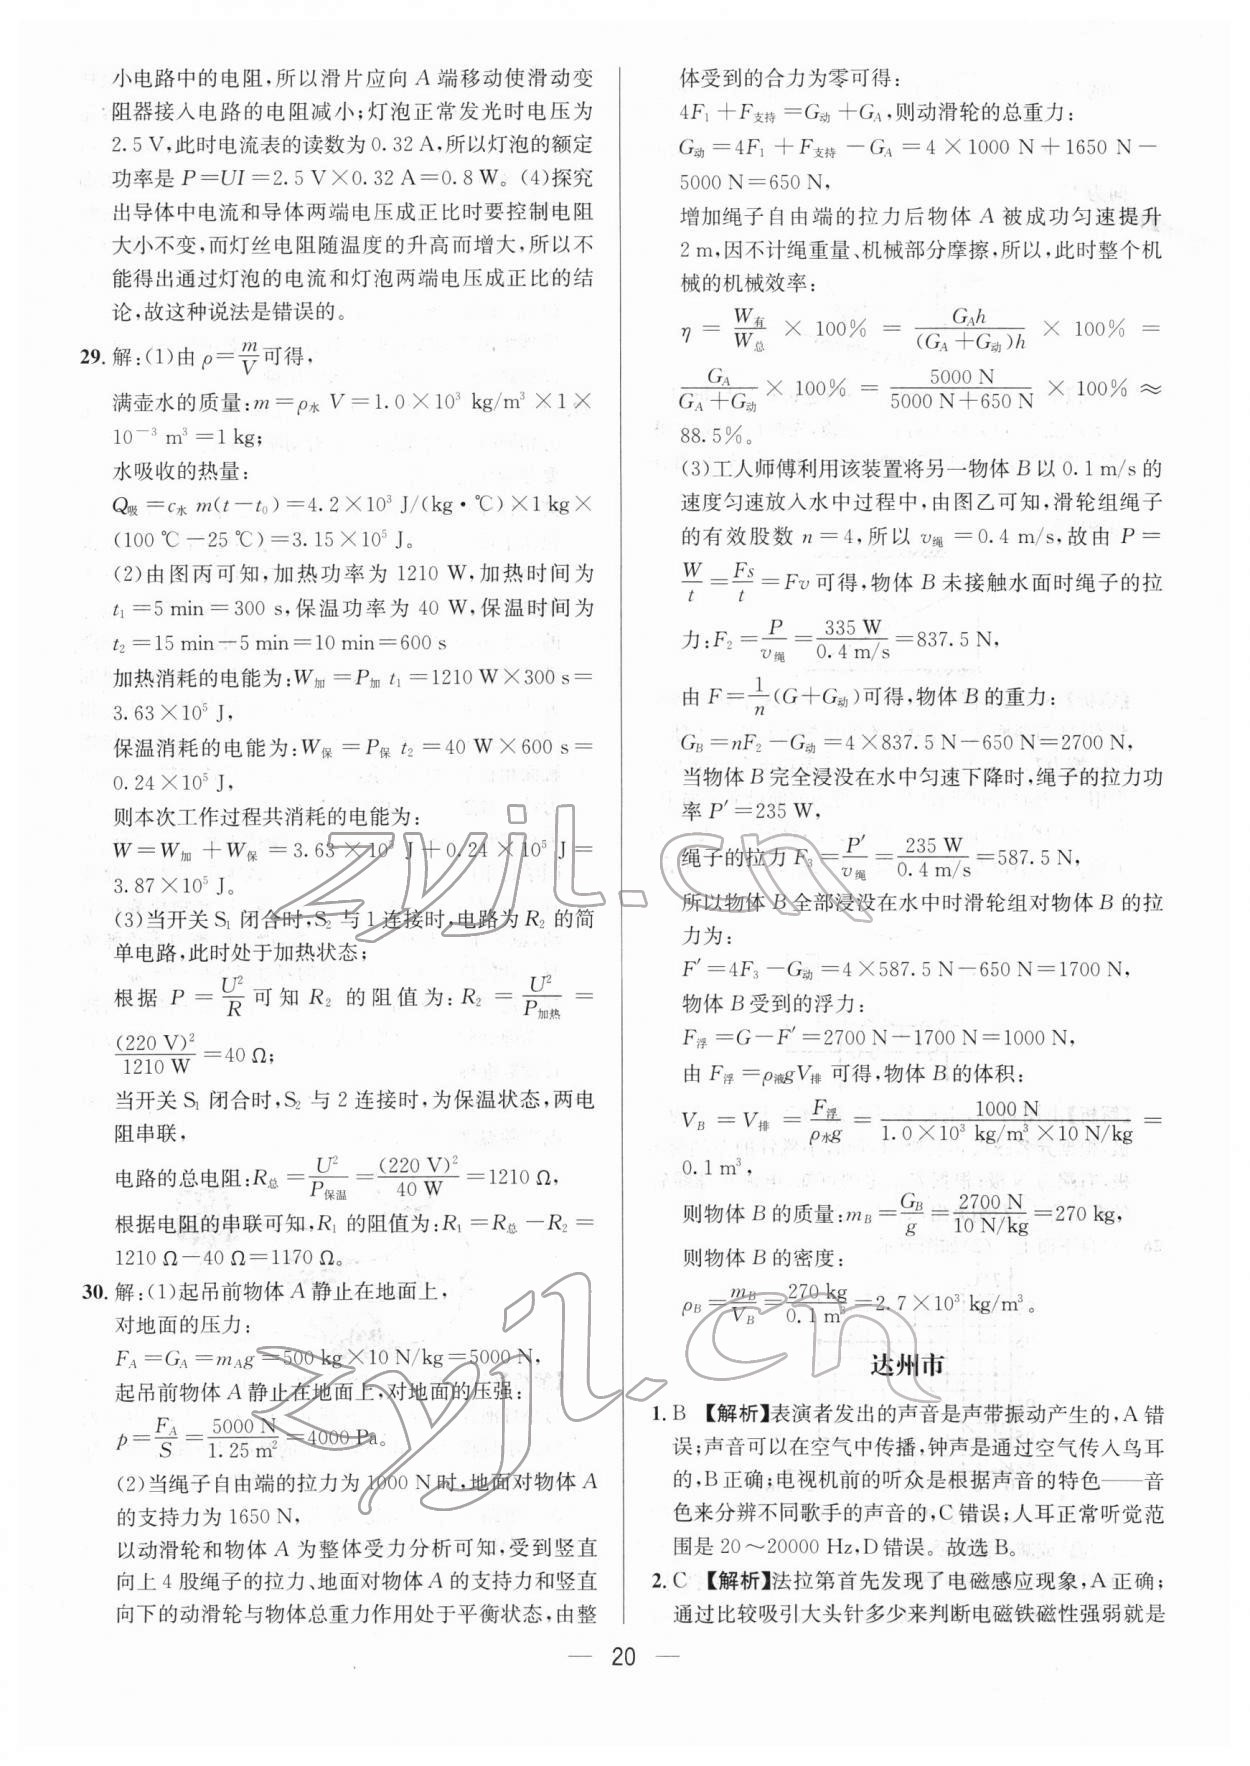 小电路中的电阻,所以滑片应向 A 端移动使滑动变
阻器接入电路的电阻减小;灯泡正常发光时电压为
2.5 V,此时电流表的读数为 0.32 A,所以灯泡的额定
功率是 P=UI=2.5 V×0.32 A=0.8 W。(4)探究
出导体中电流和导体两端电压成正比时要控制电阻
大小不变,而灯丝电阻随温度的升高而增大,所以不
能得出通过灯泡的电流和灯泡两端电压成正比的结
论,故这种说法是错误的。
29. 解:(1)由 ρ=m/V可得,
满壶水的质量:m=ρ水 V=1.0×10³ kg/m³×1×
10⁻³ m³=1 kg;
水吸收的热量:
Q吸=c水 m(t-t₀)=4.2×10³ J/(kg·℃)×1 kg×
(100 ℃-25 ℃)=3.15×10⁵ J。
(2)由图丙可知,加热功率为 1210 W,加热时间为
t₁=5 min=300 s,保温功率为 40 W,保温时间为
t₂=15 min-5 min=10 min=600 s
加热消耗的电能为:W加=P加 t₁=1210 W×300 s=
3.63×10⁵ J,
保温消耗的电能为:W保=P保 t₂=40 W×600 s=
0.24×10⁵ J,
则本次工作过程共消耗的电能为:
W=W加+W保=3.63×10⁵ J+0.24×10⁵ J=
3.87×10⁵ J。
(3)当开关 S₁ 闭合时,S₂ 与 1 连接时,电路为 R₂ 的简
单电路,此时处于加热状态;
根据 P=U²/R 可知 R₂ 的阻值为:R₂=U²/P加热=
(220 V)²/1210 W=40 Ω;
当开关 S₁ 闭合时,S₂ 与 2 连接时,为保温状态,两电
阻串联,
电路的总电阻:R总=U²/P保温=(220 V)²/40 W=1210 Ω,
根据电阻的串联可知,R₁ 的阻值为:R₁=R总-R₂=
1210 Ω-40 Ω=1170 Ω。
30. 解:(1)起吊前物体 A 静止在地面上,
对地面的压力:
F_A=G_A=m_A g=500 kg×10 N/kg=5000 N,
起吊前物体 A 静止在地面上,对地面的压强:
p=F_A/S=5000 N/1.25 m²=4000 Pa。
(2)当绳子自由端的拉力为 1000 N 时,地面对物体 A
的支持力为 1650 N,
以动滑轮和物体 A 为整体受力分析可知,受到竖直
向上 4 股绳子的拉力、地面对物体 A 的支持力和竖直
向下的动滑轮与物体总重力作用处于平衡状态,由整
体受到的合力为零可得:
4F₁+F支持=G动+G_A,则动滑轮的总重力:
G动=4F₁+F支持-G_A=4×1000 N+1650 N-
5000 N=650 N,
增加绳子自由端的拉力后物体 A 被成功匀速提升
2 m,因不计绳重量、机械部分摩擦,所以,此时整个机
械的机械效率:
η=W有/W总×100%=G_A h/(G_A+G动)h×100%=
G_A/(G_A+G动)×100%=5000 N/(5000 N+650 N)×100%≈
88.5%。
(3)工人师傅利用该装置将另一物体 B 以 0.1 m/s 的
速度匀速放入水中过程中,由图乙可知,滑轮组绳子
的有效股数 n=4,所以 v绳=0.4 m/s,故由 P=
W/t=Fs/t=Fv 可得,物体 B 未接触水面时绳子的拉
力:F₂=P/v绳=335 W/0.4 m/s=837.5 N,
由 F=1/n(G+G动)可得,物体 B 的重力:
G_B=nF₂-G动=4×837.5 N-650 N=2700 N,
当物体 B 完全浸没在水中匀速下降时,绳子的拉力功
率 P′=235 W,
绳子的拉力 F₃=P′/v绳=235 W/0.4 m/s=587.5 N,
所以物体 B 全部浸没在水中时滑轮组对物体 B 的拉
力为:
F′=4F₃-G动=4×587.5 N-650 N=1700 N,
物体 B 受到的浮力:
F浮=G-F′=2700 N-1700 N=1000 N,
由 F浮=ρ液gV排 可得,物体 B 的体积:
V_B=V排=F浮/ρ水g=1000 N/(1.0×10³ kg/m³×10 N/kg)=
0.1 m³,
则物体 B 的质量:m_B=G_B/g=2700 N/10 N/kg=270 kg,
则物体 B 的密度:
ρ_B=m_B/V_B=270 kg/0.1 m³=2.7×10³ kg/m³。
达州市
1. B 【解析】表演者发出的声音是声带振动产生的,A 错
误;声音可以在空气中传播,钟声是通过空气传入鸟耳
的,B 正确;电视机前的听众是根据声音的特色——音
色来分辨不同歌手的声音的,C 错误;人耳正常听觉范
围是 20～20000 Hz,D 错误。故选 B。
2. C 【解析】法拉第首先发现了电磁感应现象,A 正确;
通过比较吸引大头针多少来判断电磁铁磁性强弱就是
— 20 —
zyjl.cn
zyjl.cn